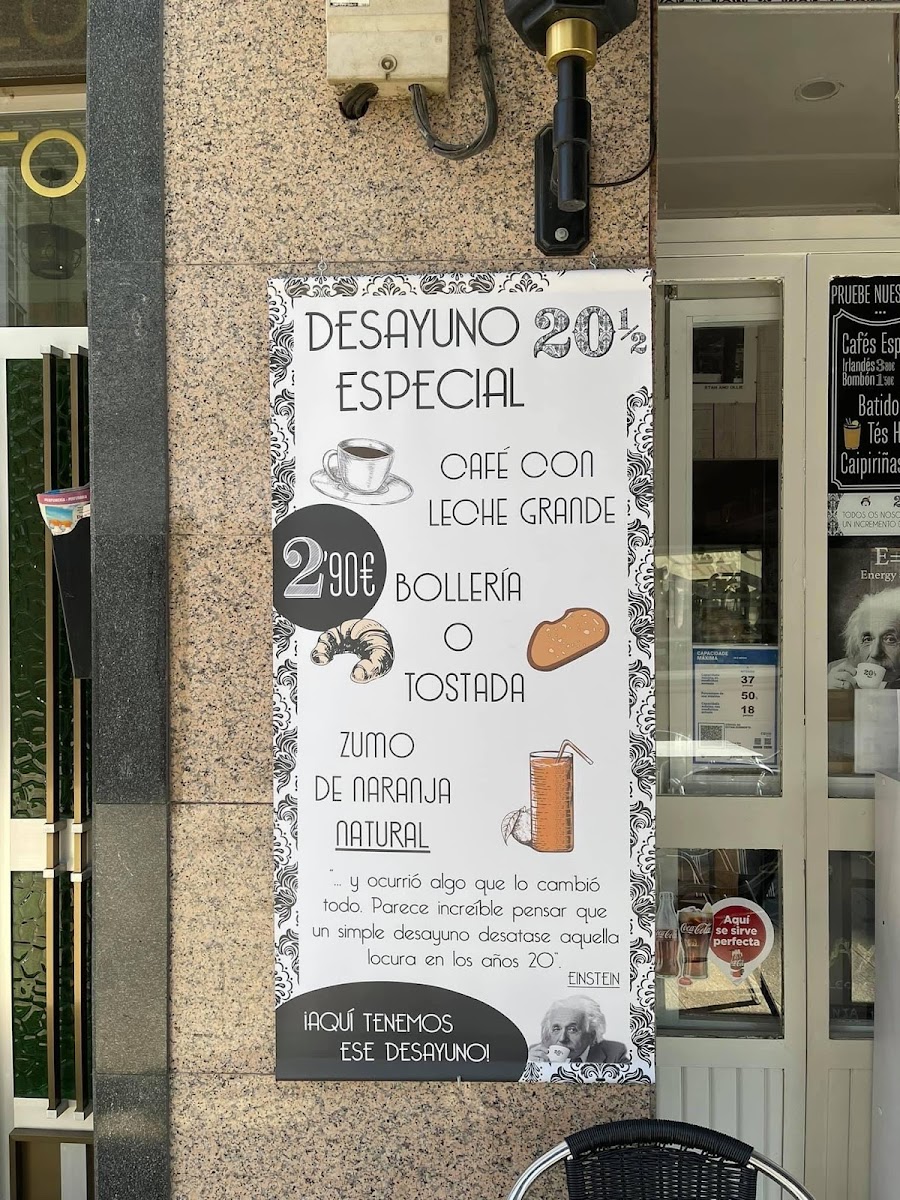 DESAYUNO 20½
ESPECIAL
CAFÉ CON
LECHE GRANDE
2'90€
BOLLERÍA
O
TOSTADA
ZUMO
DE NARANJA
NATURAL
"... y ocurrió algo que lo cambió
todo. Parece increíble pensar que
un simple desayuno desatase aquella
locura en los años 20".
EINSTEIN
¡AQUÍ TENEMOS
ESE DESAYUNO!
PRUEBE NUES
Cafés Esp
Irlandés 3'80€
Bombón 1'50€
Batido
Tés H
Caipiriñas
TODOS OS NOSO
UN INCREMENTO D
E=
Energy
20½
CAPACIDADE
MÁXIMA
37
50
18
Coca-Cola
Aquí
se sirve
perfecta